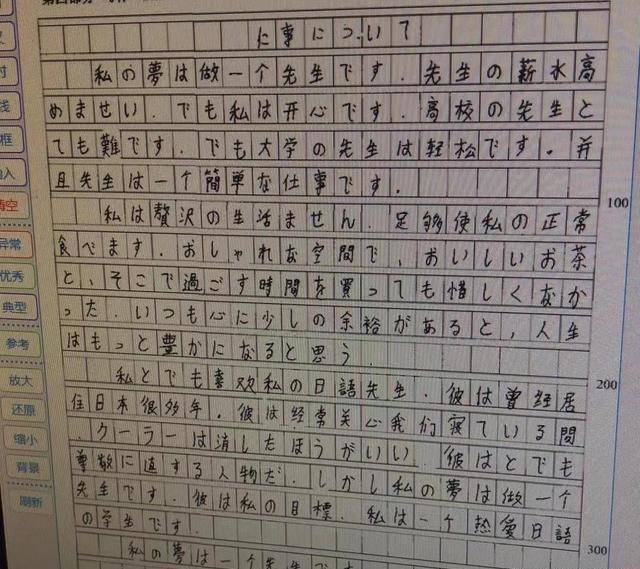 に事について
私の夢は做一个先生です．先生の薪水高
めませい．でも私は开心です．高校の先生と
ても難です．でも大学の先生は軽松です。并
且先生は一个簡単な仕事です．
100
私は贅沢の生活ません．足够使私の正常
食べます．おしゃれな空間で，おいしいお茶
と，そこで過ごす時間を買っても惜しくなか
った．いつも心に少しの余裕があると，人生
はもっと豊かになると思う．
私とても喜欢私の日語先生．彼は曾経居
200
住日本很多年．彼は経常关心我们寝ている間
．クーラーは消したほうがいい．彼はとても
尊敬に値する人物だ．しかし私の夢は做一个
先生です．彼は私の目標．私は一个热爱日語
の学生です．
300
私の夢は一个先生です
线
框
入
清空
异常
优秀
典型
参考
放大
还原
缩小
背景
刷新